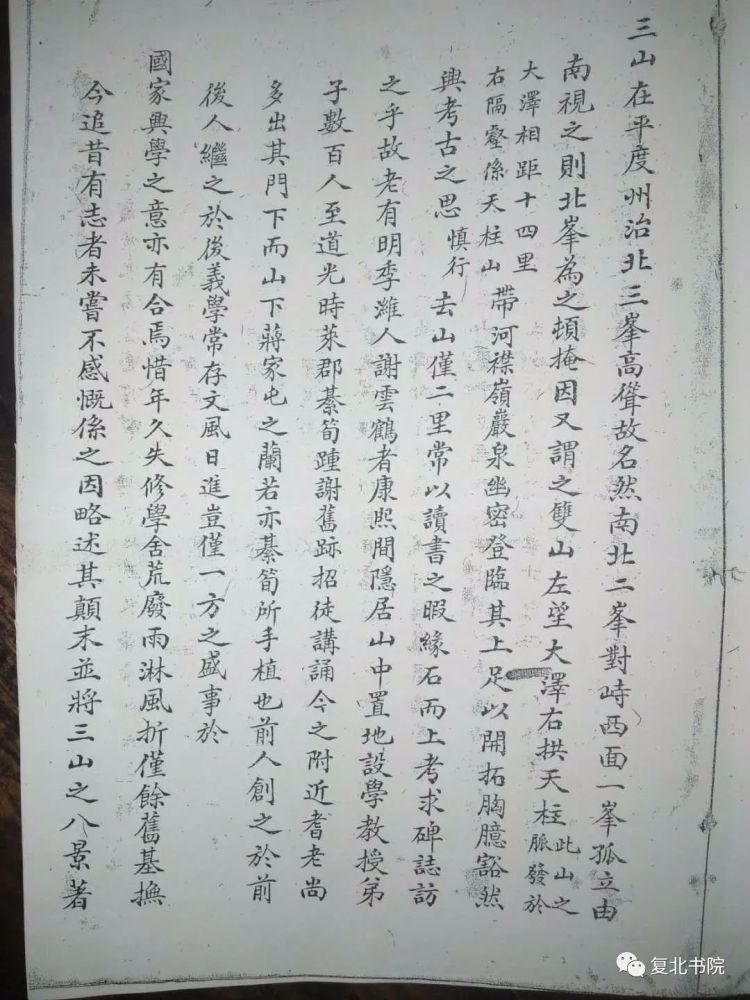 三山在平度州治北三峯高聳故名然南北二峯對峙西面一峯孤立由
南視之則北峯為之頓掩因又謂之雙山左望大澤右拱天柱此山之脈發於
大澤相距十四里右隔壑係天柱山帶河襟嶺巖泉幽密登臨其上足以開拓胸臆豁然
與考古之思慎行去山僅二里常以讀書之暇緣石而上考求碑誌訪
之乎故老有明季濰人謝雲鶴者康熙間隱居山中置地設學教授弟
子數百人至道光時萊郡綦筍踵謝舊跡招徒講誦今之附近耆老尚
多出其門下而山下蔣家屯之蘭若亦綦筍所手植也前人創之於前
後人繼之於後義學常存文風日進豈僅一方之盛事於
國家興學之意亦有合焉惜年久失修學舍荒廢雨淋風折僅餘舊基撫
今追昔有志者未嘗不感慨係之因略述其顛末並將三山之八景著
复北书院